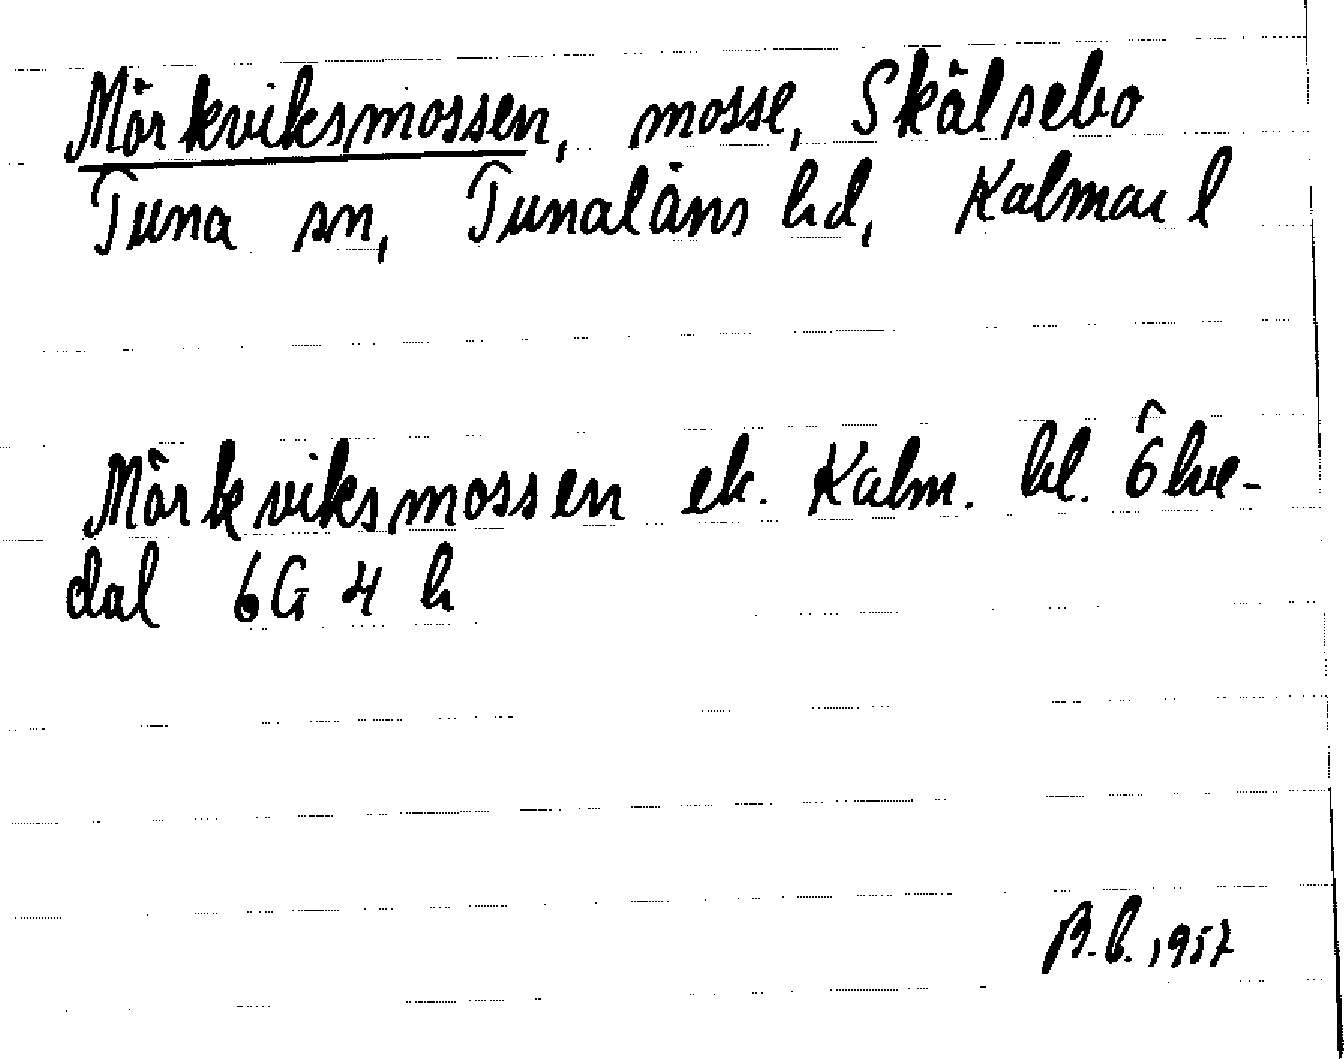 Mörkviksmossen, mosse, Skälsebo
Tuna sn, Tunaläns hd, Kalmar l
Mörkviksmossen ek. Kalm. bl. Ölve-
dal 6G 4 h
B.B. 1957